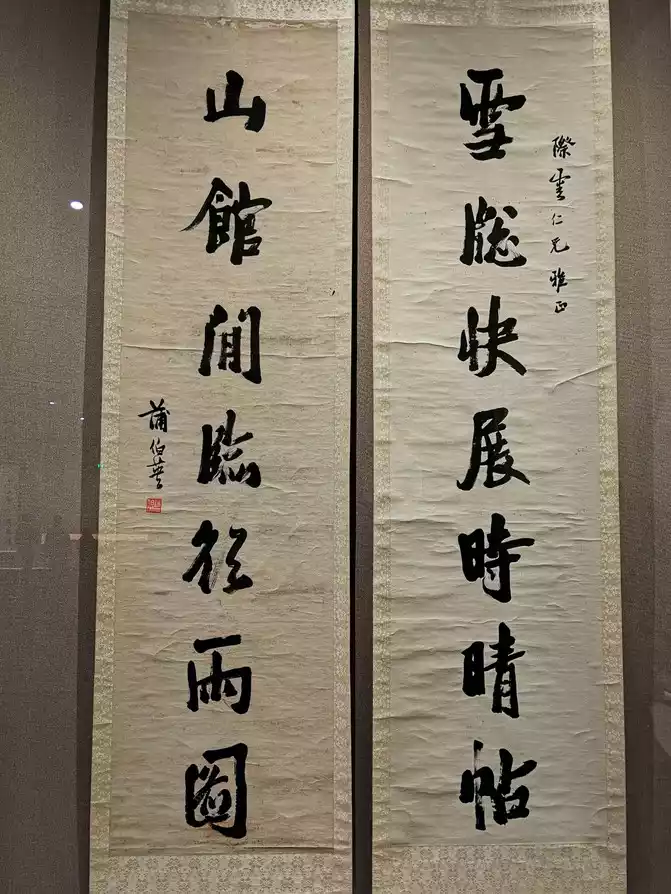 雪牕快展時晴帖
際雲仁兄雅正
山館閒臨欲雨圖
蒲伯英